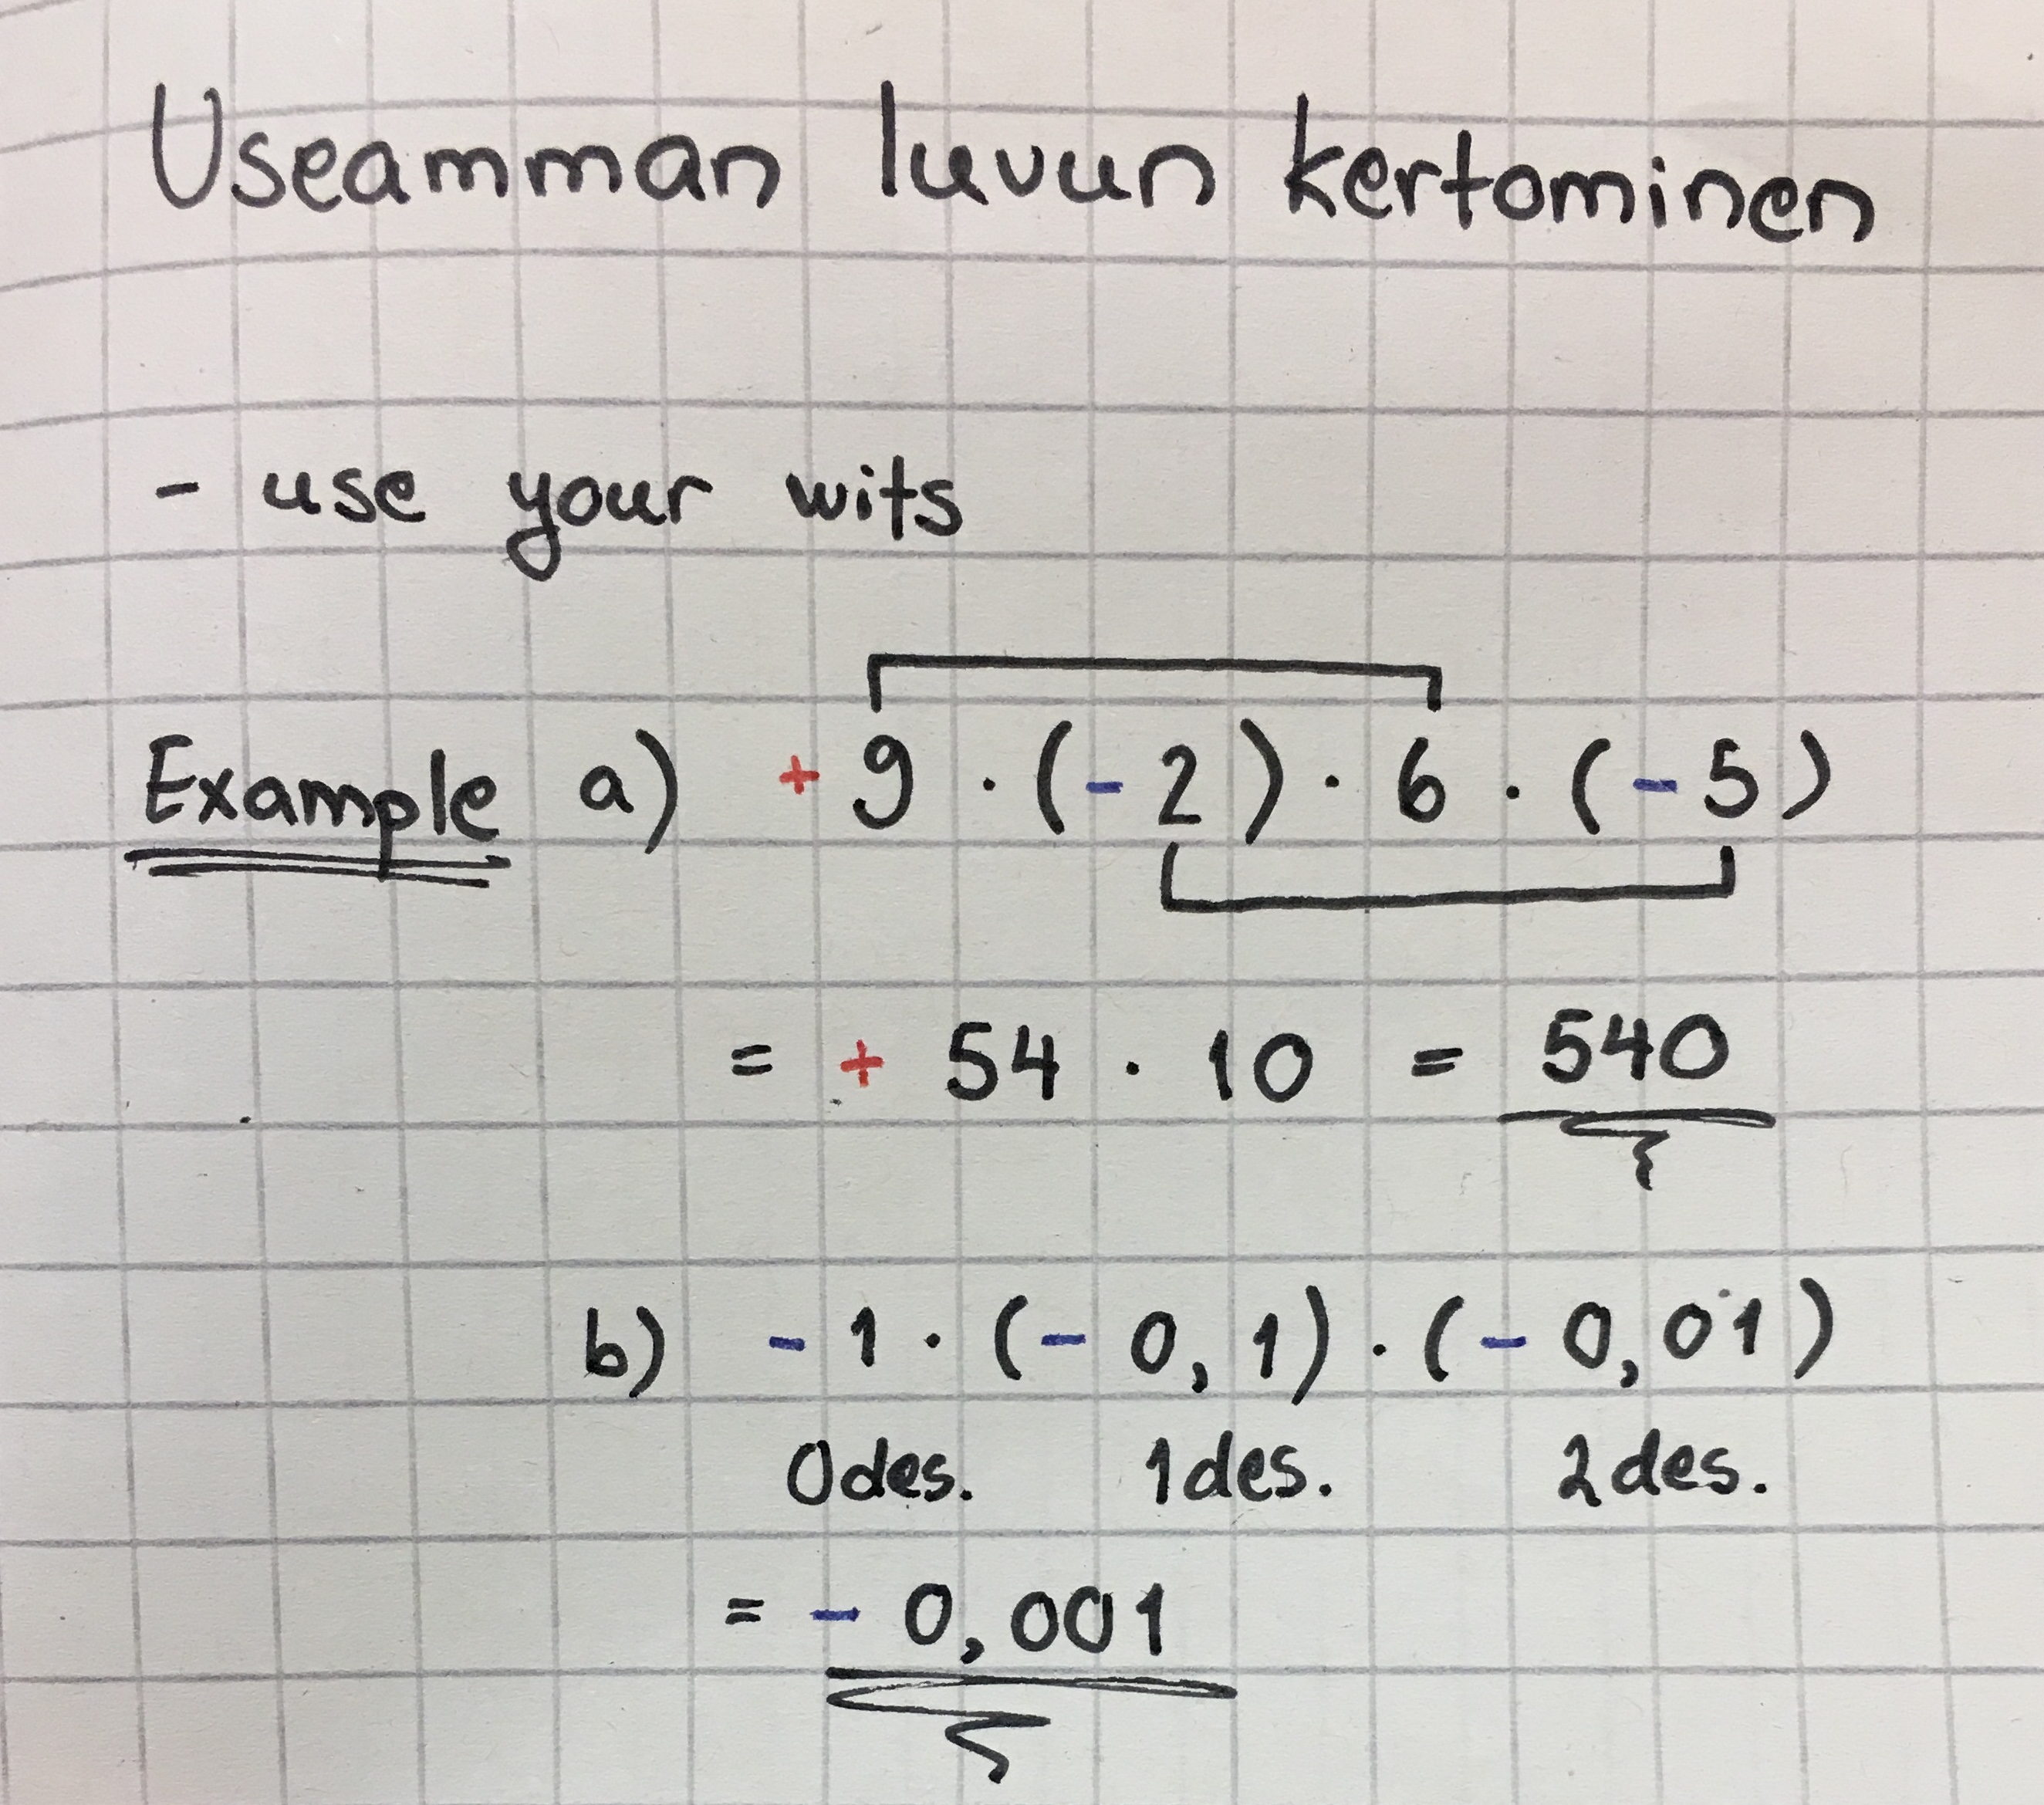 Useamman luvun kertominen
- use your wits
Example a) + 9 · (- 2) · 6 · (- 5)
= + 54 · 10 = 540
b) - 1 · (- 0,1) · (- 0,01)
0des. 1des. 2des.
= - 0,001